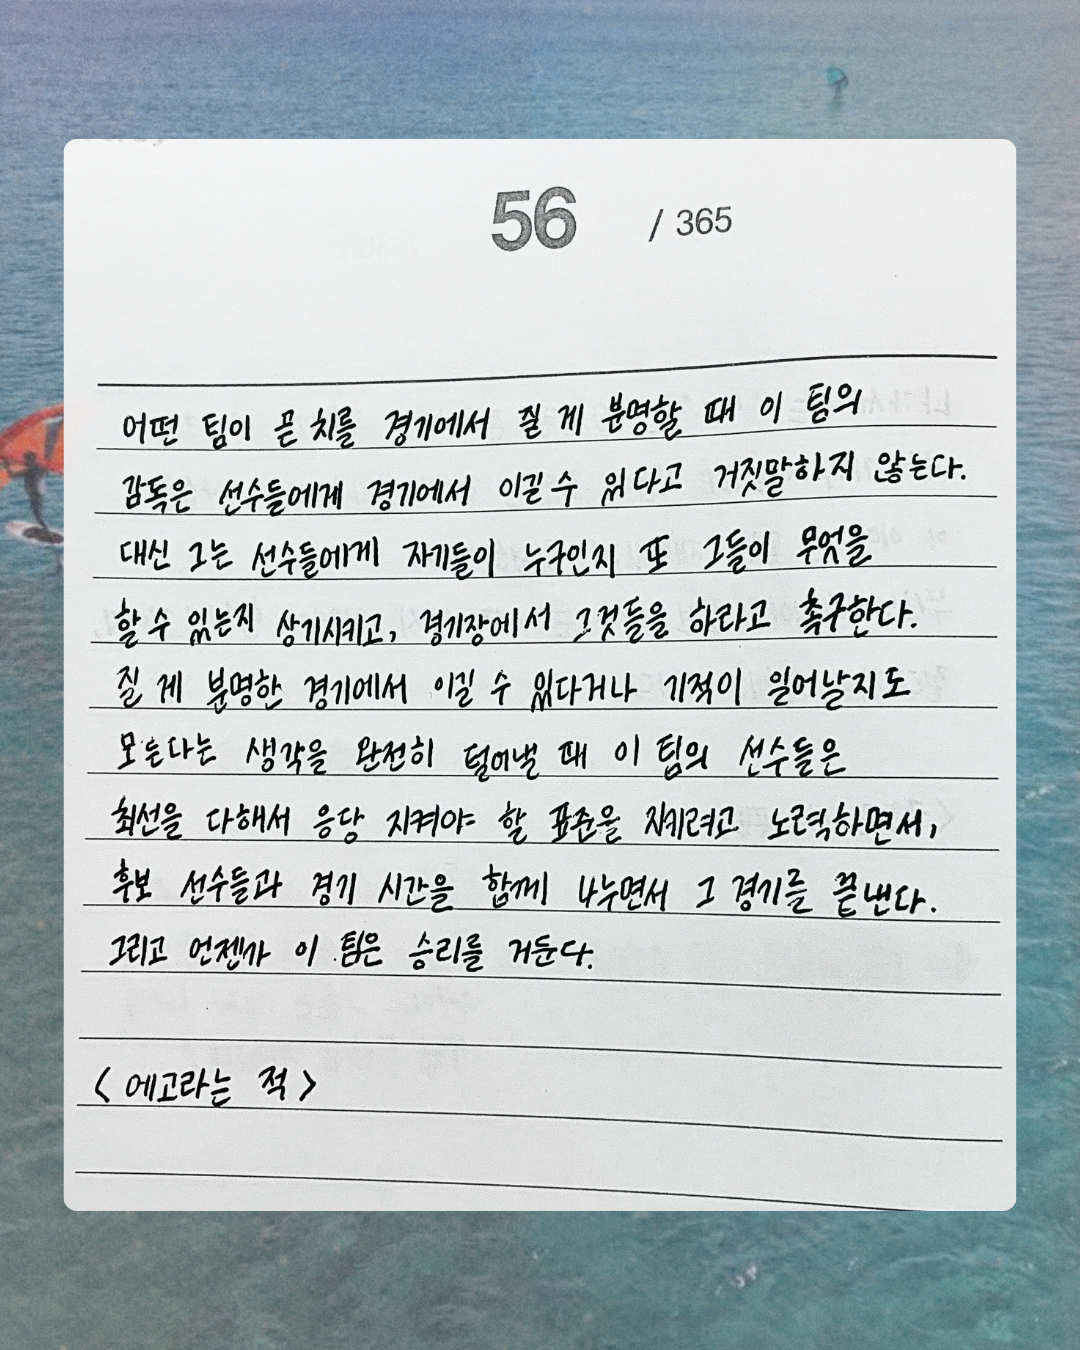 56 / 365
어떤 팀이 곧 치를 경기에서 질 게 분명할 때 이 팀의
감독은 선수들에게 경기에서 이길 수 있다고 거짓말하지 않는다.
대신 그는 선수들에게 자기들이 누구인지 또 그들이 무엇을
할 수 있는지 상기시키고, 경기장에서 그것들을 하라고 촉구한다.
질 게 분명한 경기에서 이길 수 있다거나 기적이 일어날지도
모른다는 생각을 완전히 털어낼 때 이 팀의 선수들은
최선을 다해서 응당 지켜야 할 표준을 지키려고 노력하면서,
후보 선수들과 경기 시간을 함께 나누면서 그 경기를 끝낸다.
그리고 언젠가 이 팀은 승리를 거둔다.
< 에고라는 적 >